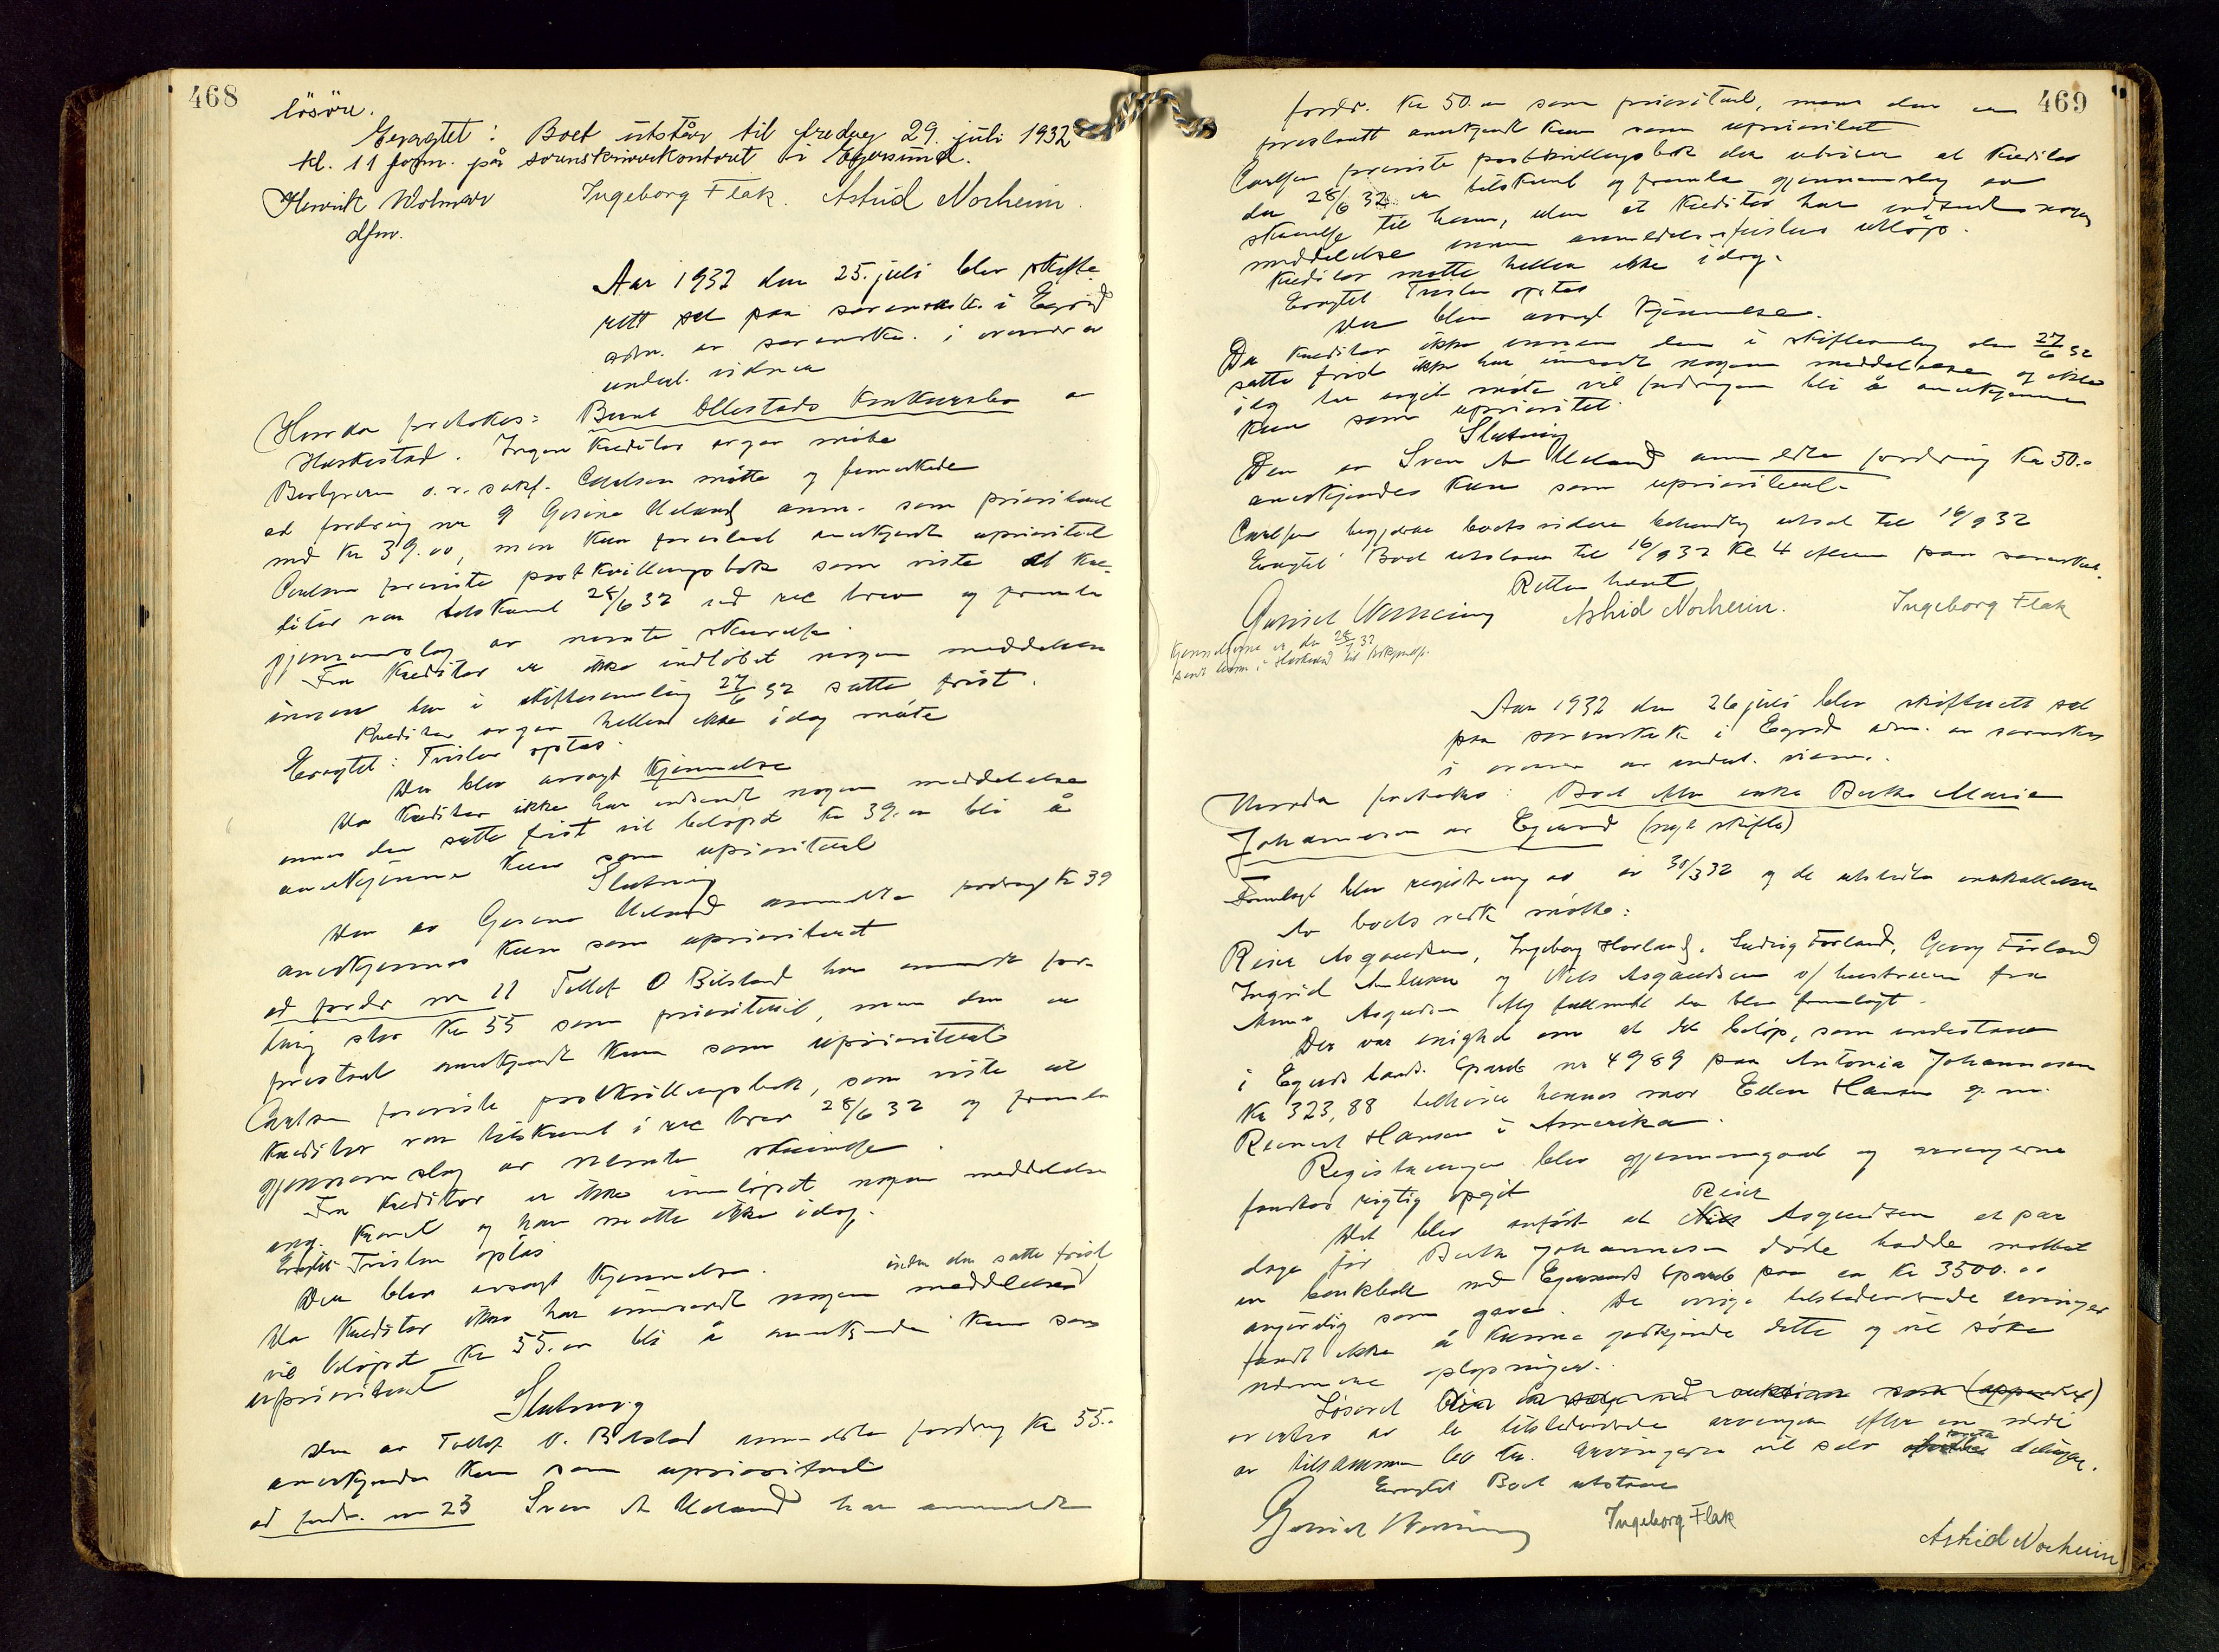 468
løsøre.
Eragtet: Boet utstår til fredag 29. juli 1932
kl. 11 form. på sorenskriverkontoret i Egersund.
Ingeborg Flak. Astrid Norheim.
dfm.
Aar 1932 den 25. juli blev skifte
rett sat paa sorenskr.k. i Egrsd
adm. av sorenskr. i overvær av
undert. vidner
Hvorda foretokes: Bernt Ollestads konkursbo av
Heskestad. Ingen kreditor avgav møte
Bestyreren o.r.sakf. Carlsen møtte og bemerkede
ad fordring nr 9 Gesine Ueland anm. som prioritert
med kr 39.00, men kun foreslaat anerkjendt uprioritert
Carlsen foreviste postkvitteringsbok som viste at kre-
ditor var tilskrevet 28/6 32 ved rec brev og fremla
gjennemslag av nevnte skrivelse.
Fra kreditor er ikke indløbet nogen meddelelse
innen den i skiftesamling 27/6 32 satte frist.
Kreditor avgav heller ikke idag møte
Eragtet: Tvisten optas.
Der blev avsagt Kjennelse
Da kreditor ikke har indsendt nogen meddelelse
innen den satte frist vil beløpet kr 39.00 bli å
anerkjenne kun som uprioritert
Slutning
Den av Gesine Ueland anmeldte fordring kr 39
anerkjennes kun som uprioritert
ad fordr nr 11 Tollef O Bilstad har anmeldt for-
dring stor kr 55 som prioritert, men den er
foreslaat anerkjendt kun som uprioritert
Carlsen foreviste postkvitteringsbok, som viste at
kreditor var tilskrevet i rec brev 28/6 32 og fremla
gjennemslag av nevnte skrivelse.
Fra kreditor er ikke innløpet nogen meddelelse
ang. kravet og han møtte ikke idag.
Eragtet Tvisten optas
Der blev avsagt Kjennelse.
inden den satte frist
Da kreditor ikke har innsendt nogen meddelelse
vil beløpet kr 55.00 bli å anerkjende kun som
uprioritert
Slutning
Den av Tollef O. Bilstad anmeldte fordring kr 55.-
anerkjendes kun som uprioritert
ad fordr. nr 23 Sven A Ueland har anmeldt
469
fordr. kr 50.00 som prioritert, men den er
foreslaatt anerkjendt kun som uprioritert
Carlsen foreviste postkvitteringsbok der utviser at kreditor
den 28/6 32 er tilskrevet og fremla gjennemslag av
skrivelse til ham, uten at kreditor har indsendt nogen
meddelelse innen anmeldelsesfristens utløp.
Kreditor møtte heller ikke idag.
Eragtet Tvisten optas
Der blev avsagt Kjennelse.
Da kreditor ikke innen den i skiftesamling den 27/6 32
satte frist ikke har innsendt nogen meddelelse og ikke
idag har avgit møte vil fordringen bli å anerkjenne
kun som uprioritet.
Slutning
Den av Sven A Ueland anmeldte fordring kr 50.-
anerkjendes kun som uprioritert.
Carlsen begjærte boets videre behandling utsat til 16/9 32
Eragtet: Boet utstaar til 16/9 32 kl 4 efterm paa sorenskrk.
Retten hævet
Astrid Norheim. Ingeborg Flak
Kjennelserne er den 28/7 32
Aar 1932 den 26 juli blev skifterett sat
paa sorenskr.k. i Egrsd adm. av sorenskr.
i overvær av undert. vidner.
Hvorda foretokes: Boet efter enke Berthe Marie
Johannesen av Egersund (nyt skifte)
Fremlagt blev registrering av 30/3 32 og de utstedte indkallelser
Av boets vedk møtte:
Reier Asgaudsen, Ingeborg Hovland, Ludvig Førland, Georg Førland
Ingrid og Nils Asgaudsen v/ hustruen fra
Anna Asgaudsen iflg fullmakt der blev fremlagt.
Der var enighed om at det beløp, som indestaaer
i Egersds Spareb nr 4989 paa Antonia Johannesen
kr 323,88 tilhører hennes mor Ellen Hansen g. m.
Reinert Hansen i Amerika.
Registreringen blev gjennemgaaet og arvingerne
fandtes rigtig opgit
Reier
Det blev anført at Nils Asgaudsen et par
dage før Berthe Johannesen døde hadde mottat
en bankbok med Egersunds Spareb paa ca kr 3500.00
angivelig som gave. De øvrige tilstedeværende arvinger
fandt ikke å kunne godkjende dette og vil søke
nærmere oplysninger.
Løsøret
er utlos av de tilstedeværende arvinger efter en verdi
av tilsammen kr. Arvingerne vil selv foreta delingen.
Eragtet Boet utstaar
Ingeborg Flak
Astrid Norheim